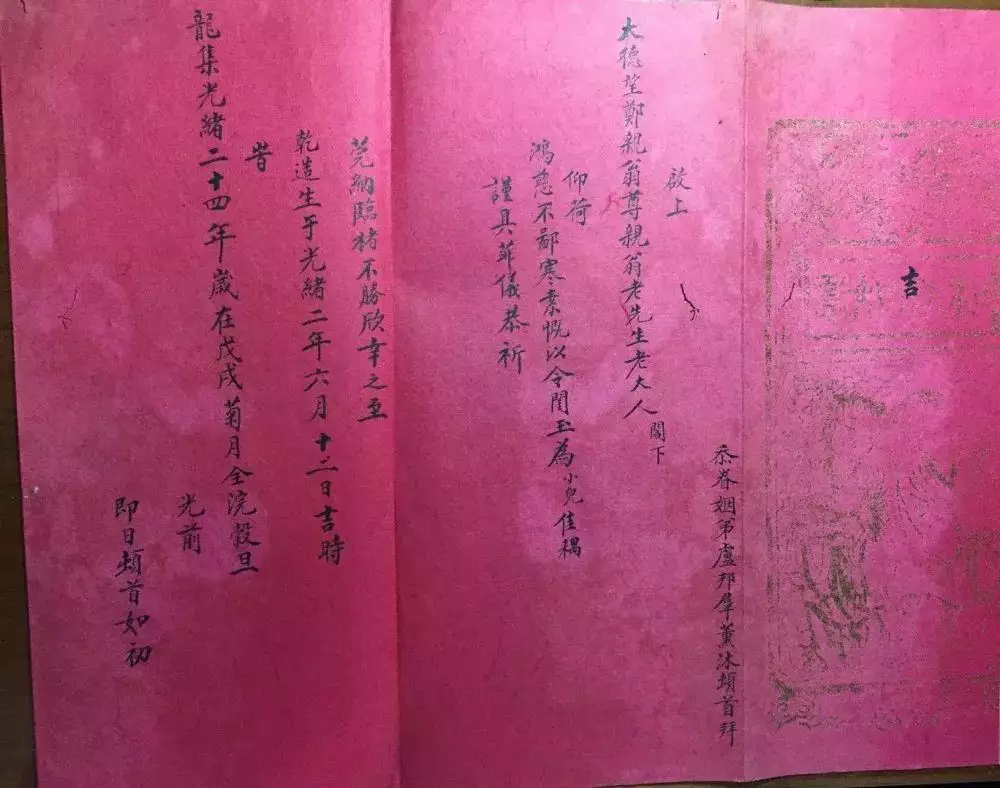 吉
忝眷姻弟盧邦犀薰沐頓首拜
啟上
大德望鄭親翁尊親翁老先生老大人閣下
仰荷
鴻慈不鄙寒素慨以令閨玉為小兒佳耦
謹具菲儀恭祈
莞納臨楮不勝欣幸之至
乾造生于光緒二年六月十二日吉時
旹
龍集光緒二十四年歲在戊戌菊月全浣穀旦
光前
即日頓首如初